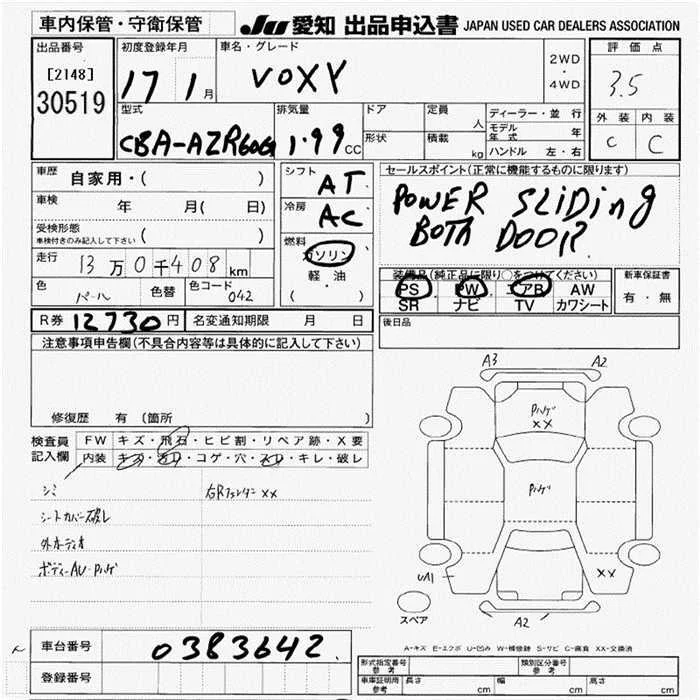 車内保管・守衛保管
JU 愛知 出品申込書 JAPAN USED CAR DEALERS ASSOCIATION
出品番号
[2148]
30519
初度登録年月
17 1月
車名・グレード
VOXY
2WD
・
4WD
評価点
3.5
外装 内装
C C
型式
CBA-AZR60G
排気量
1.99 CC
ドア
形状
定員 人
積載 kg
ディーラー・並行
モデル年式 年
ハンドル 左・右
車歴 自家用・( )
車検 年 月( 日)
受検形態
車検付きのみ記入して下さい ( )
走行 13万0千408km
色 パール 色替 色コード 042
シフト AT
冷房 AC
燃料 ガソリン
軽・油
( )
セールスポイント(正常に機能するものに限ります)
POWER SLiDing
BOTH DOOR.
装備品(純正品に限り○をつけてください)
PS PW エアB AW
SR ナビ TV カワシート
新車保証書
有・無
R券 12730円 名変通知期限 月 日
後日品
注意事項申告欄(不具合内容等は具体的に記入して下さい)
修復歴 有 (箇所 )
検査員記入欄
FW キズ・飛石・ヒビ割・リペア跡・X要
内装 キズ・汚レ・コゲ・穴・スレ・キレ・破レ
シミ 右Rフェンダー XX
シートカバー破レ
外オーディオ
ボディーAU・Pハゲ
A3 A2
Pハゲ
XX
Pハゲ
UA1 XX
スペア A2
A-キズ E-エクボ U-凹み W-補修跡 S-サビ C-腐食 XX-交換済
車台番号 0383642
登録番号
形式指定番号 参考 類別区分番号 参考
車庫証明用 参考 長さ cm 幅 cm 高さ cm